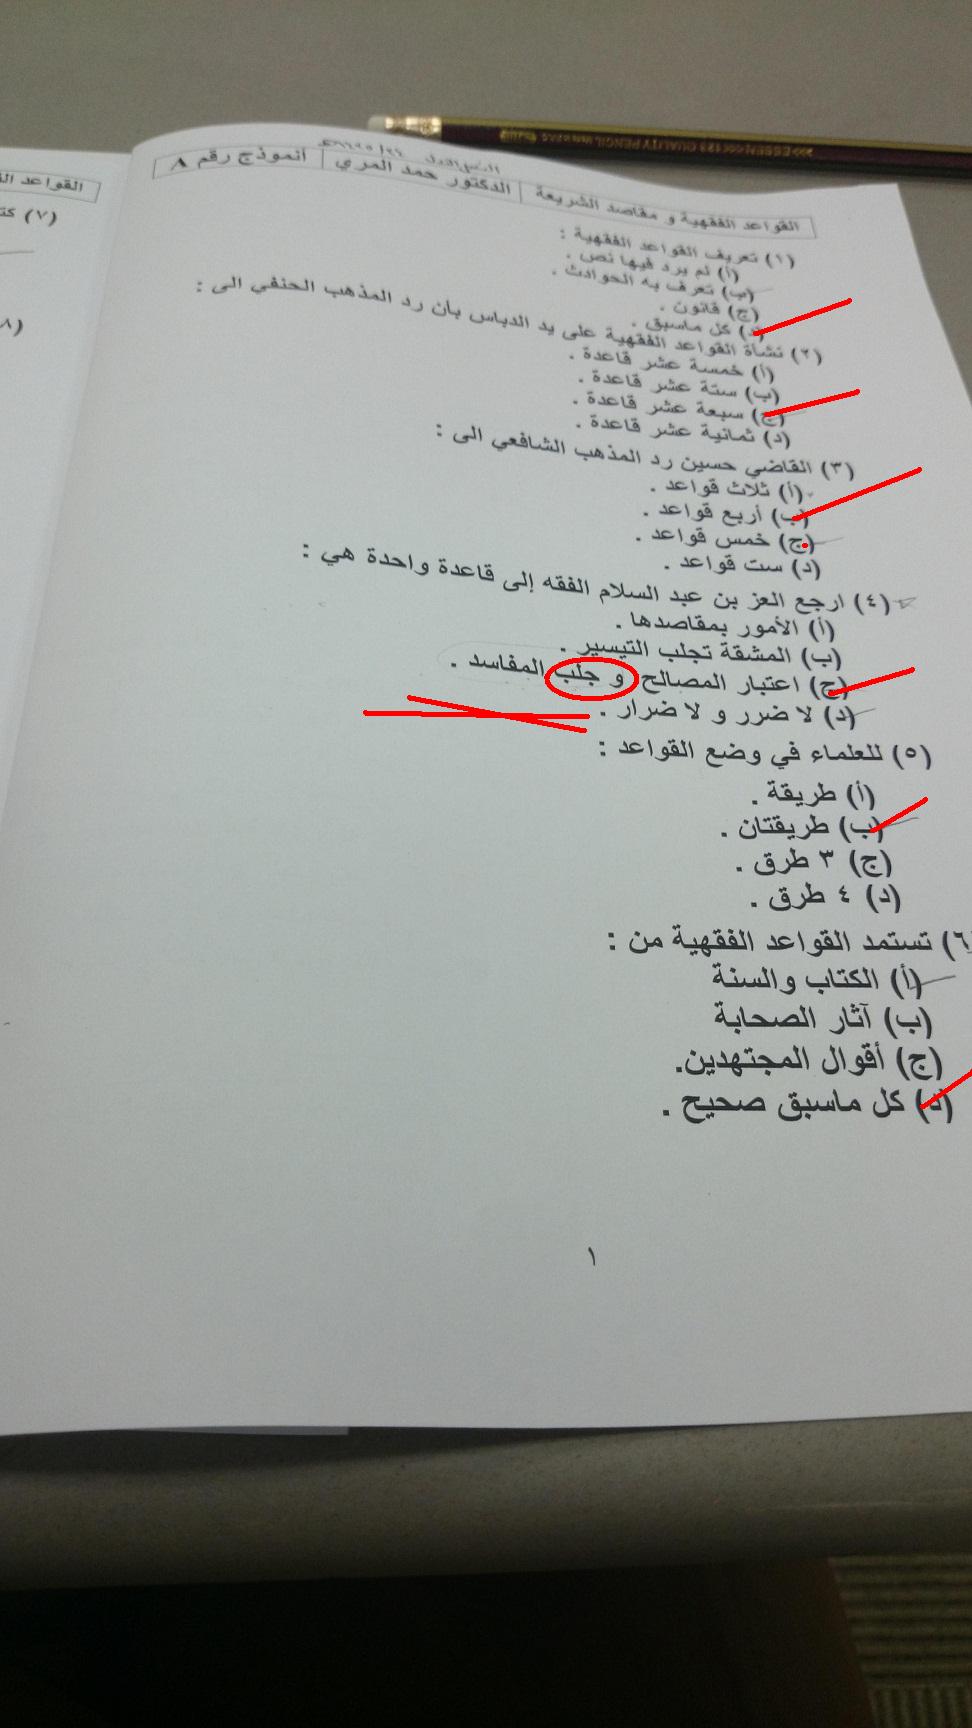 ESSEN <<<123 QUALITY PENCIL
القواعد الفقهية و مقاصد الشريعة
الدكتور حمد المري
أنموذج رقم ٨
(١) تعريف القواعد الفقهية :
(أ) لم يرد فيها نص .
(ب) تعرف به الحوادث .
(ج) قانون .
(د) كل ماسبق .
(٢) نشأة القواعد الفقهية على يد الدباس بأن رد المذهب الحنفي الى :
(أ) خمسة عشر قاعدة .
(ب) ستة عشر قاعدة .
(ج) سبعة عشر قاعدة .
(د) ثمانية عشر قاعدة .
(٣) القاضي حسين رد المذهب الشافعي الى :
(أ) ثلاث قواعد .
(ب) أربع قواعد .
(ج) خمس قواعد .
(د) ست قواعد .
(٤) ارجع العز بن عبد السلام الفقه إلى قاعدة واحدة هي :
(أ) الأمور بمقاصدها .
(ب) المشقة تجلب التيسير .
(ج) اعتبار المصالح و جلب المفاسد .
(د) لا ضرر و لا ضرار .
(٥) للعلماء في وضع القواعد :
(أ) طريقة .
(ب) طريقتان .
(ج) ٣ طرق .
(د) ٤ طرق .
(٦) تستمد القواعد الفقهية من :
(أ) الكتاب والسنة
(ب) آثار الصحابة
(ج) أقوال المجتهدين.
(د) كل ماسبق صحيح .
١
القواعد
(٧)
(٨